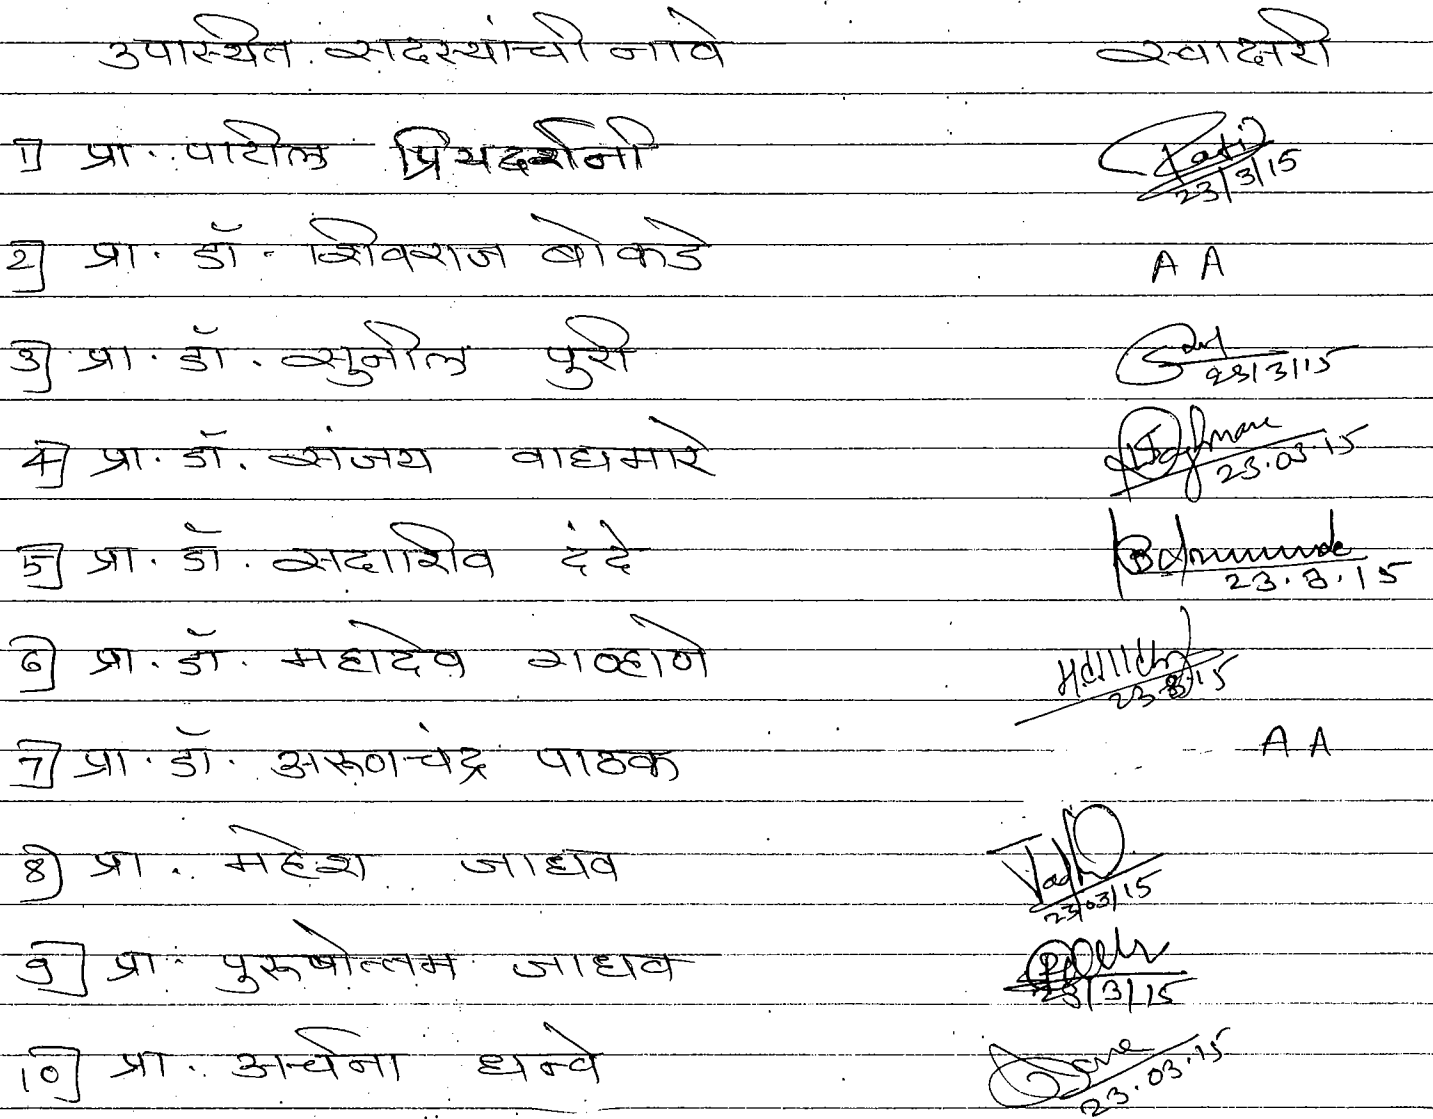 उपस्थित सदस्यांची नावे स्वाक्षरी
1] प्रा. पाटील प्रियदर्शनी 23/3/15
2] प्रा. डॉ. शिवराज बोकडे A A
3] प्रा. डॉ. सुनील पुरी 23/3/15
4] प्रा. डॉ. संजय वाघमारे 23.03.15
5] प्रा. डॉ. सदाशिव दंदे 23.3.15
6] प्रा. डॉ. महादेव गव्हाणे 23.3.15
7] प्रा. डॉ. अरूणचंद्र पाठक A A
8] प्रा. महेश जाधव 23/03/15
9] प्रा. पुरूषोत्तम जाधव 23/3/15
10] प्रा. अर्चना धन्वे 23.03.15